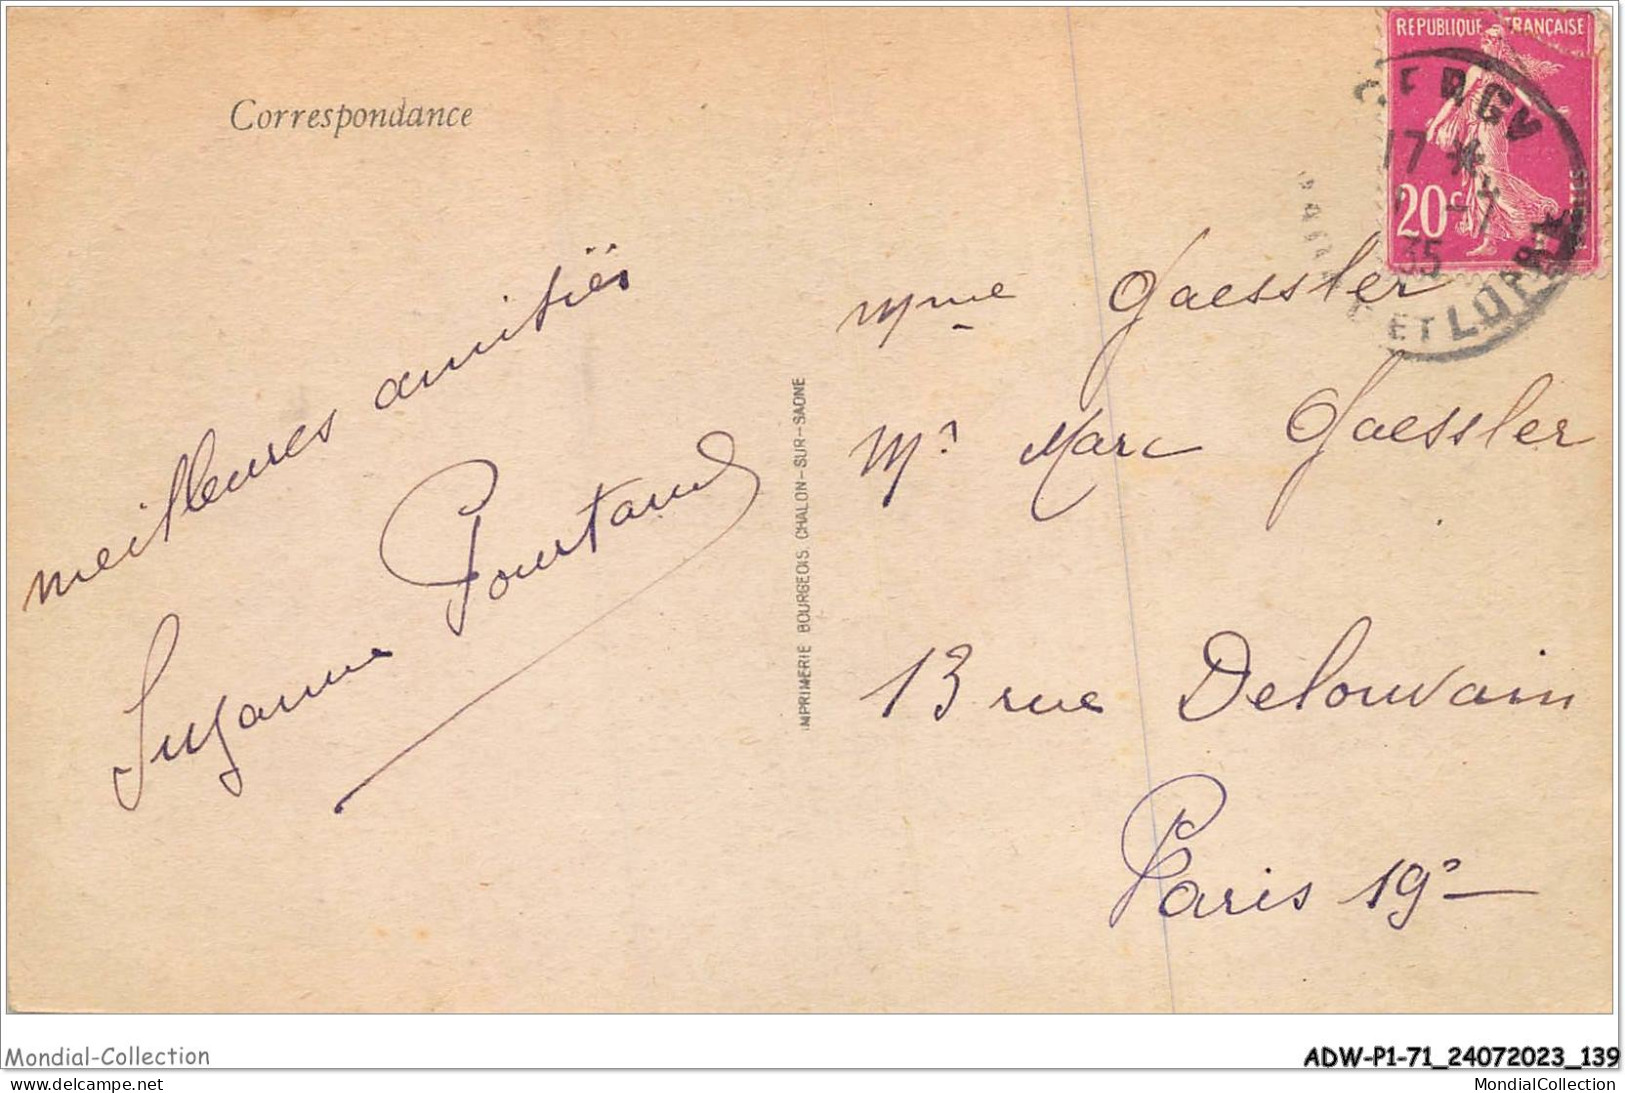 Correspondance
REPUBLIQUE FRANÇAISE
20c
17 *
-7
35
ET LOIRE
meilleures amitiés
Suzanne
IMPRIMERIE BOURGEOIS. CHALON-SUR-SAONE
Mme Gaessler
Mr Marc Gaessler
13 rue Delouvain
Paris 19e
Mondial-Collection
ADW-P1-71_24072023_139
delcampe.net
MondialCollection